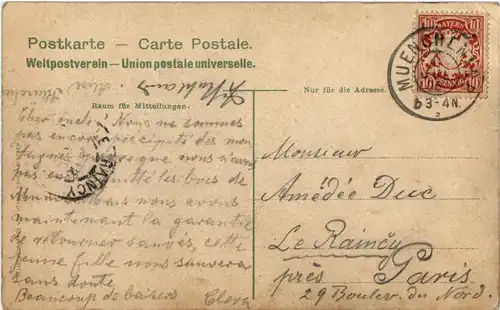 Postkarte — Carte Postale.
Weltpostverein — Union postale universelle.
Nur für die Adresse.
Raum für Mitteilungen.
BAYERN
10 10
10 PFENNIG 10
MUENCHEN
3-4N.
2
LE RAINCY
Cher oncle. Nous ne sommes
pas encore précipité des mon
tagnes que nous n'avons
pas quitté les bocs de
Mais nous avons
maintenant la garantie
de retourner sauvés, cette
jeune fille nous sauvera
sans doute.
Beaucoup de baisers Clara
Monsieur
Amédée Duc
Le Raincy
près Paris
29 Boulev. du Nord.